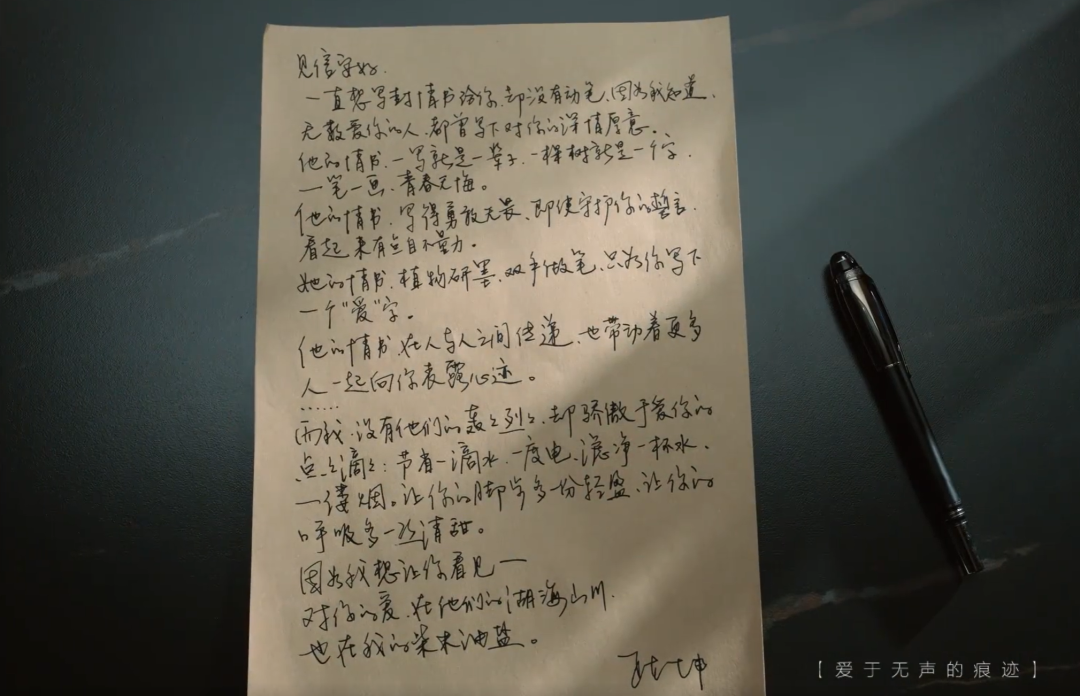 见信安好.
一直想写封情书给你,却没有动笔,因为我知道,
无数爱你的人,都曾写下对你的深情厚意.
他的情书,一写就是一辈子,一棵树就是一个字,
一笔一画,青春无悔。
他的情书,写得勇敢无畏,即使守护你的誓言,
看起来有点自不量力。
她的情书,植物研墨,双手做笔,只为你写下
一个“爱”字。
他的情书,在人与人之间传递,也带动着更多
人一起向你表露心迹。
……
而我,没有他们的轰轰列列,却骄傲于爱你的
点点滴滴:节省一滴水,一度电,滤净一杯水,
一缕烟。让你的脚步多一份轻盈,让你的
呼吸多一丝清甜。
因为我想让你看见——
对你的爱,在他们的湖海山川,
也在我的柴米油盐。
【爱于无声的痕迹】